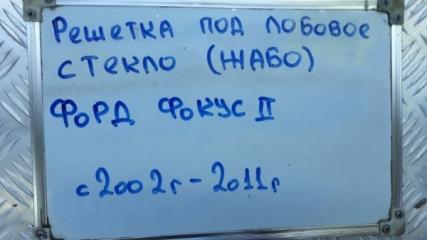 Решетка под лобовое
стекло (жабо)
Форд Фокус II
с 2002г - 2011г